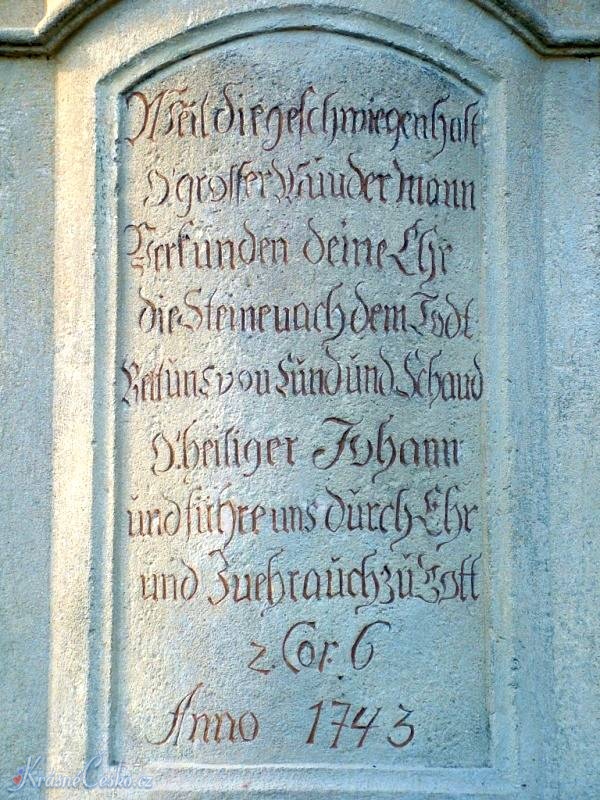 Weil die geschwiegen hast
O' grosser Wŭnder Mann
Verkŭnden deine Ehr
die Steine nach dem Todt
Rett ŭns von Sŭnd ŭnd Schand
O' heiliger Johann
ŭnd fŭhre uns dŭrch Ehr
und
zŭ Gott
2. Cor. 6
Anno 1743
KrásnéČesko.cz